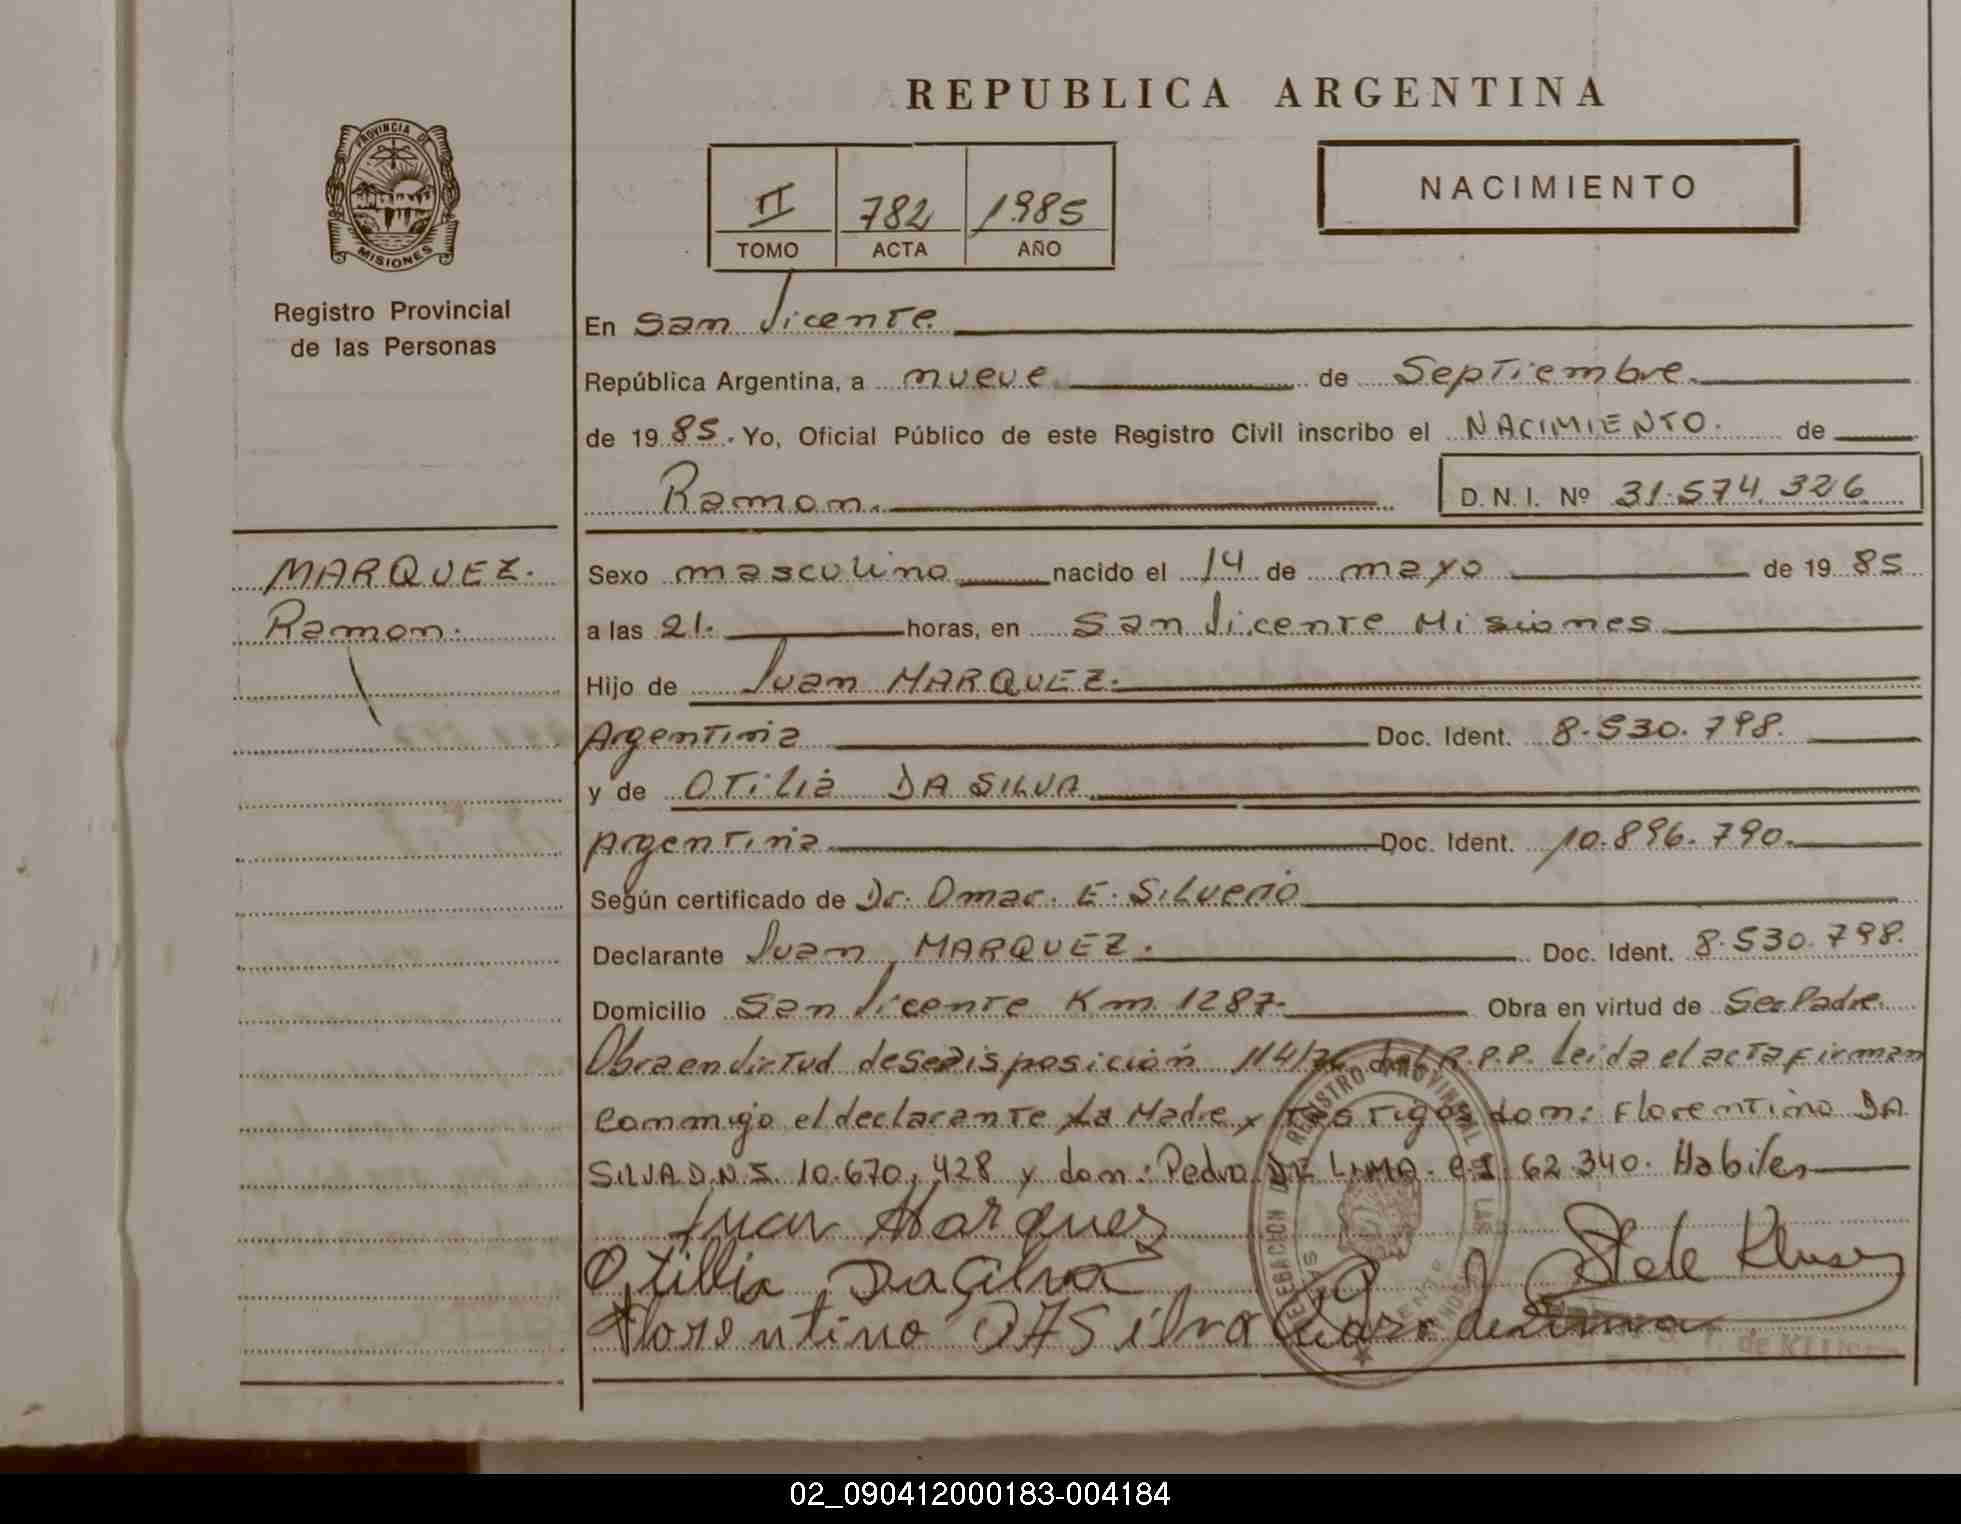 REPUBLICA ARGENTINA
PROVINCIA DE
MISIONES
Registro Provincial
de las Personas
II 782 1985
TOMO ACTA AÑO
NACIMIENTO
En San Vicente
República Argentina, a nueve de Septiembre
de 1985. Yo, Oficial Público de este Registro Civil inscribo el NACIMIENTO. de
Ramon. D.N.I. Nº 31.574 326
MARQUEZ.
Ramon.
Sexo masculino nacido el 14 de mayo de 1985
a las 21. horas, en San Vicente Misiones
Hijo de Juan MARQUEZ.
Argentina Doc. Ident. 8.530.798.
y de Otilia DA SILVA
Argentina Doc. Ident. 10.896.790.
Según certificado de Dr. Omar. E. Silverio
Declarante Juan MARQUEZ. Doc. Ident. 8.530.798.
Domicilio San Vicente Km 1287. Obra en virtud de Ser Padre.
Obra en virtud de disposición 114/76 del R.P.P. leida el acta firman
conmigo el declarante La Madre y testigos don: Florentino DA
SILVA D.N.I. 10.670.428 y don: Pedro DE LIMA. C.I. 62.340. Habiles
Juan Marquez
Otillia Da Silva
Florentino DA Silva
REGISTRO PROVINCIAL
02_090412000183-004184